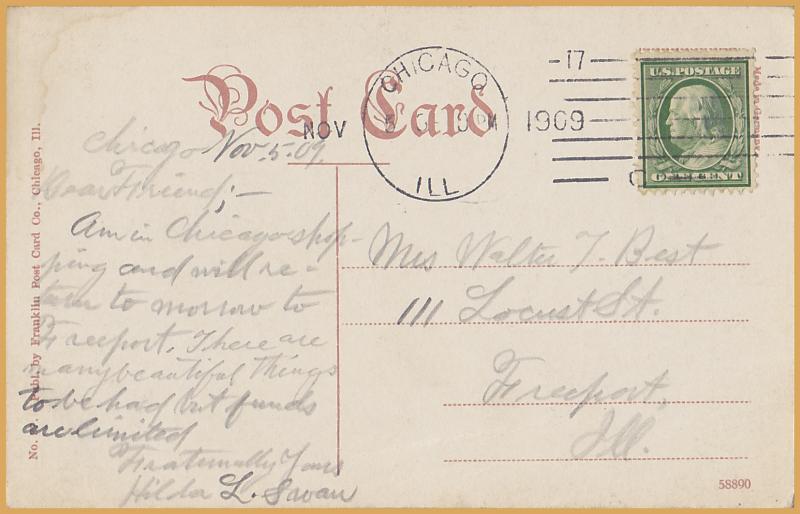 Post Card
CHICAGO
ILL
NOV
1909
17
U.S. POSTAGE
ONE CENT
Made in Germany
Publ. by Franklin Post Card Co., Chicago, Ill.
No.
Chicago Nov. 5. 09
Dear Friend; —
Am in Chicago shop-
ping and will re-
turn to morrow to
Freeport. There are
many beautiful things
to be had but funds
are limited
Fraternally Yours
Hilda L. Swan
Mrs Walter T. Best
111 Locust St.
Freeport,
Ill.
58890